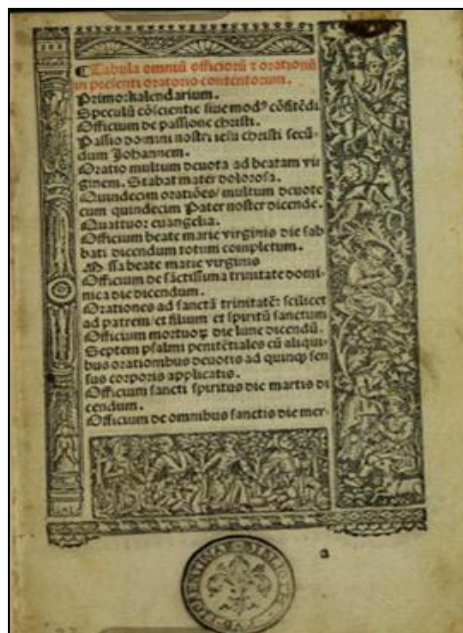 ¶Tabula omniũ officiorũ ⁊ orationũ
in presenti oratorio contentorum.
Primo:kalendarium.
Speculũ cõscientie siue modꝰ cõfitẽdi.
Officium de passione christi.
Passio domini nostri iesu christi secũ-
dum Johannem.
Oratio multum deuota ad beatam vir
ginem. Stabat mater dolorosa.
Quindecim oratiões/ multum deuote
cum quindecim Pater noster dicende.
Quattuor euangelia.
Officium beate marie virginis die sab
bati dicendum totum completum.
Missa beate marie virginis
Officium de sãctissima trinitate domi-
nica die dicendum.
Orationes ad sanctã trinitatẽ: scilicet
ad patrem/ et filium et spiritũ sanctum
Officium mortuoꝝ die lune dicendũ.
Septem psalmi penitẽtiales cũ aliqui-
bus orationibus deuotis ad quinqꝫ sen
sus corporis applicatis.
Officium sancti spiritus die martis di
cendum.
Officium de omnibus sanctis die mer-
a